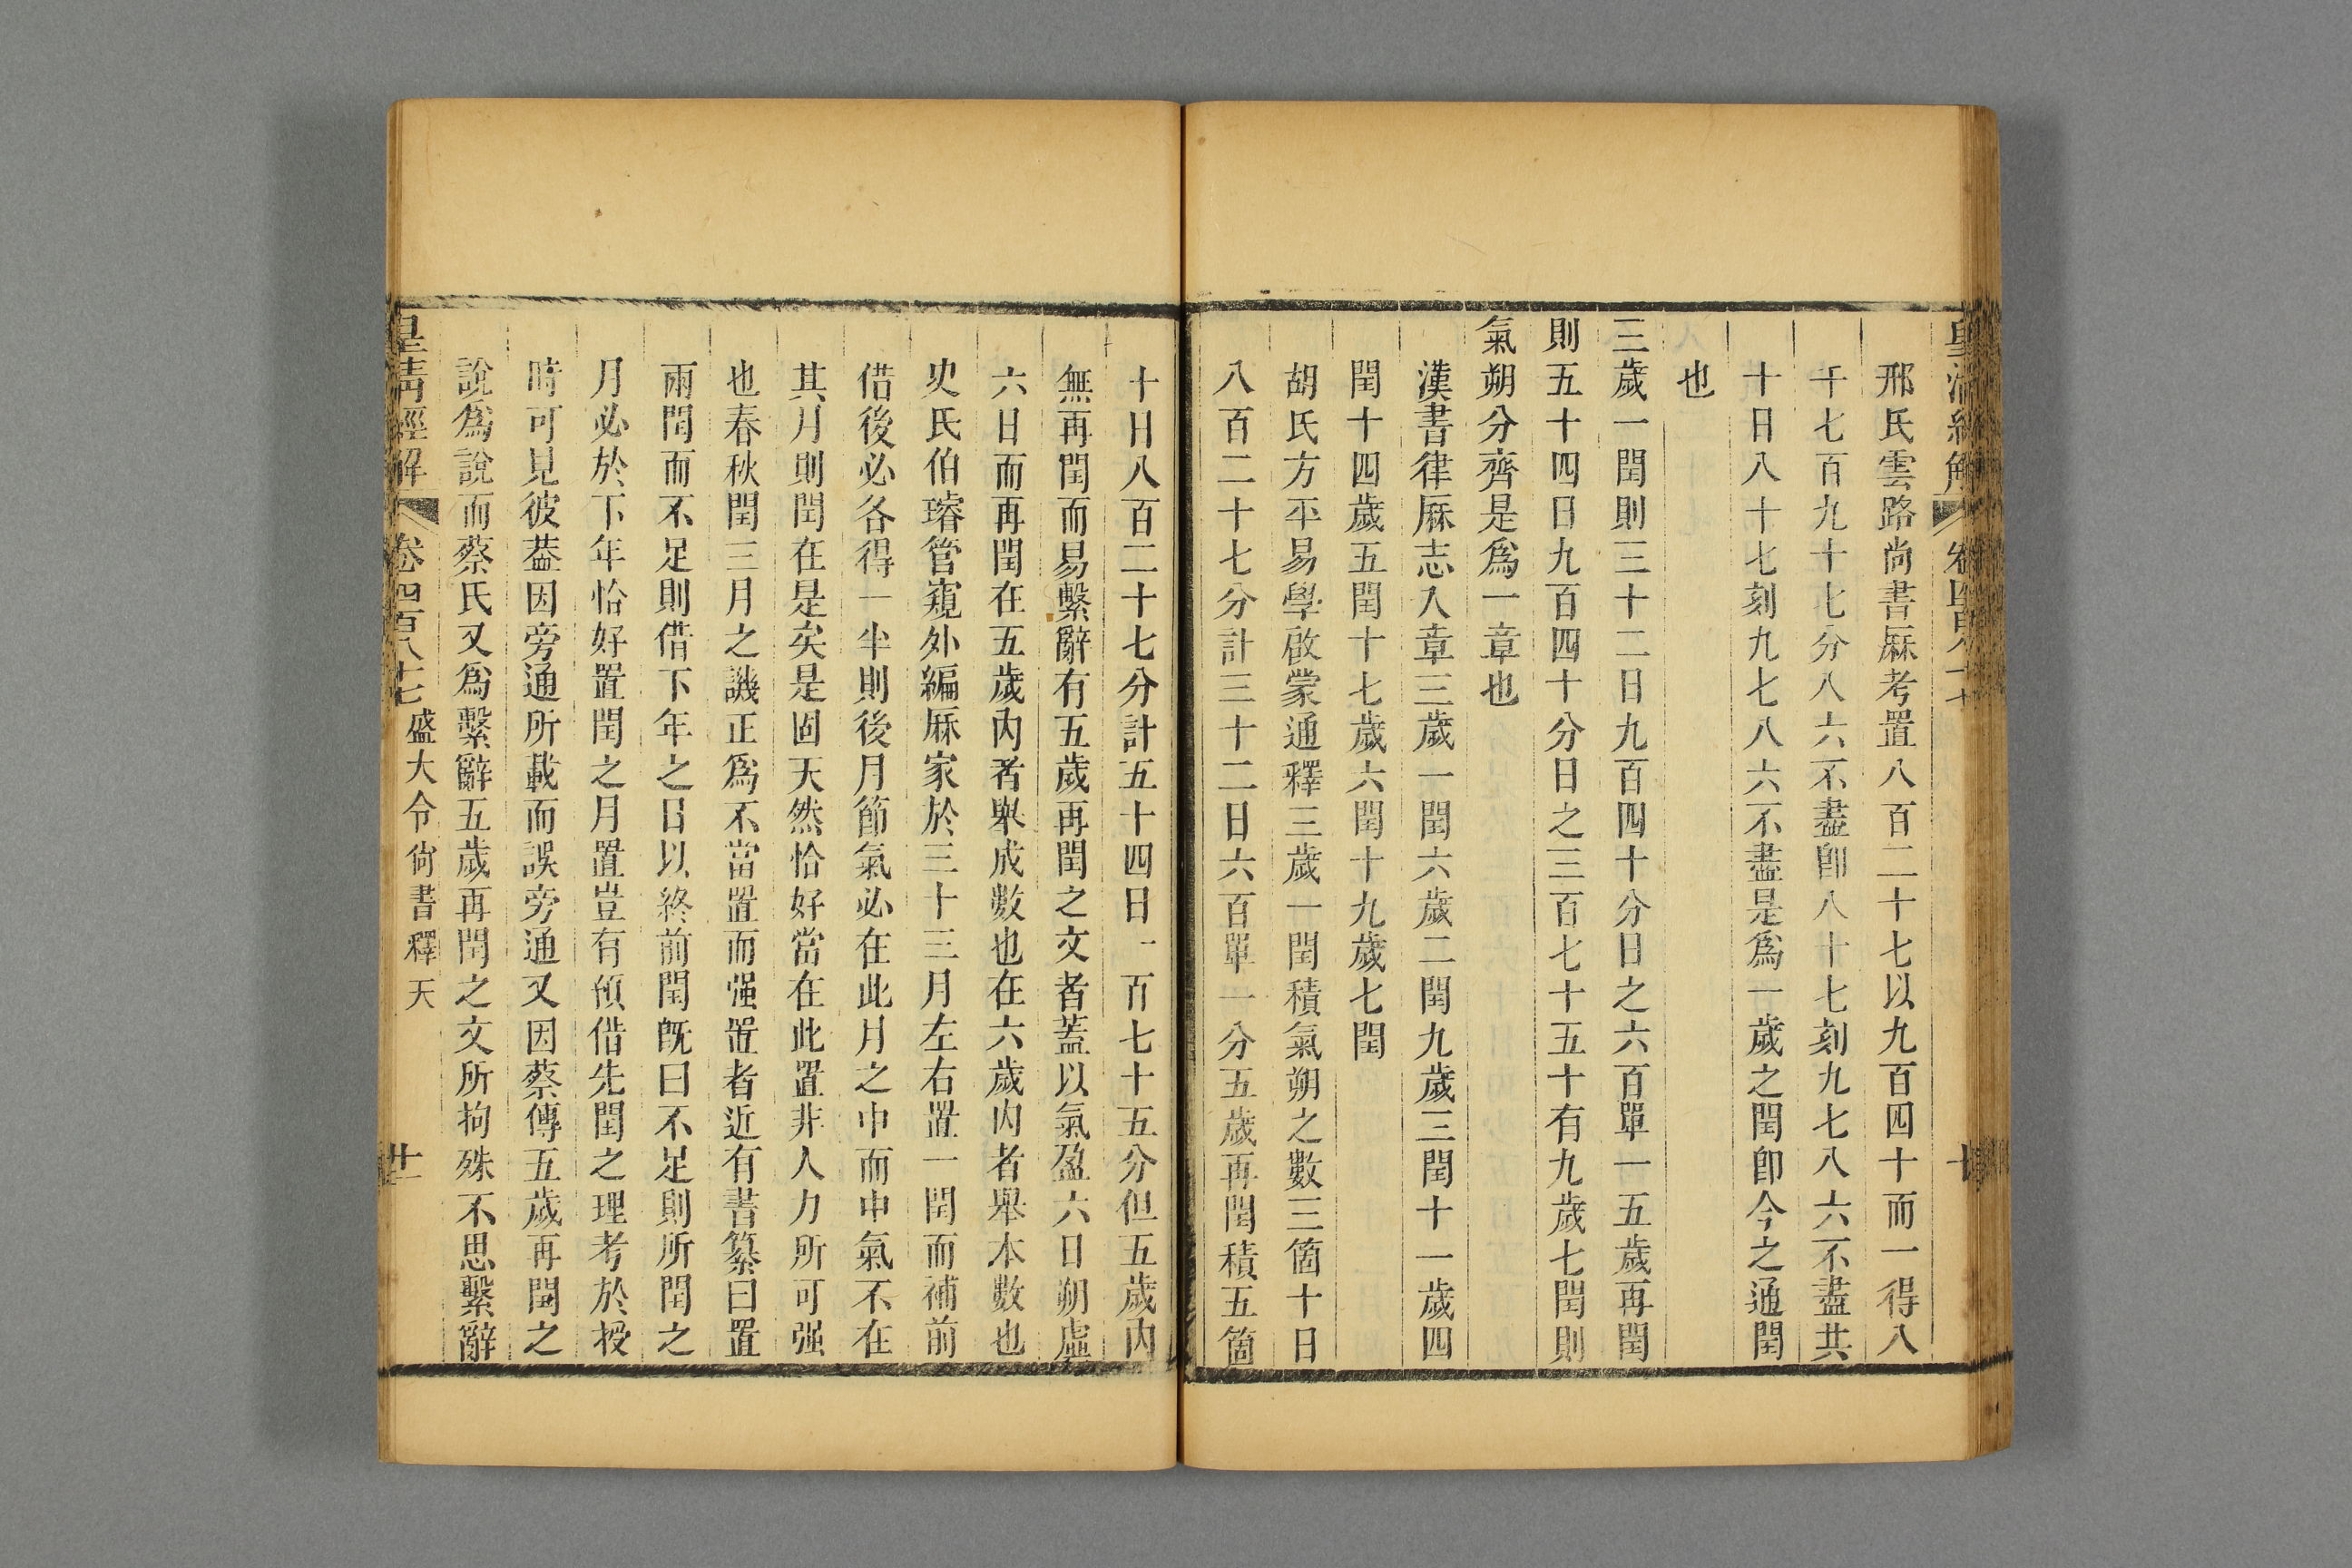 皇清經解 卷四百八十七 十
邢氏雲路尚書厤考置八百二十七以九百四十而一得八
千七百九十七分八六不盡卽八十七刻九七八六不盡共
十日八十七刻九七八六不盡是爲一歲之閏卽今之通閏
也
三歲一閏則三十二日九百四十分日之六百單一五歲再閏
則五十四日九百四十分日之三百七十五十有九歲七閏則
氣朔分齊是爲一章也
漢書律厤志入章三歲一閏六歲二閏九歲三閏十一歲四
閏十四歲五閏十七歲六閏十九歲七閏
胡氏方平易學啟蒙通釋三歲一閏積氣朔之數三箇十日
八百二十七分計三十二日六百單一分五歲再閏積五箇
十日八百二十七分計五十四日一百七十五分但五歲內
無再閏而易繫辭有五歲再閏之文者蓋以氣盈六日朔虛
六日而再閏在五歲內者舉成數也在六歲內者舉本數也
史氏伯璿管窺外編厤家於三十三月左右置一閏而補前
借後必各得一半則後月節氣必在此月之中而中氣不在
其月則閏在是矣是固天然恰好當在此置非人力所可强
也春秋閏三月之譏正爲不當置而强置者近有書纂曰置
兩閏而不足則借下年之日以終前閏旣曰不足則所閏之
月必於下年恰好置閏之月置豈有預借先閏之理考於授
時可見彼葢因旁通所載而誤旁通又因蔡傳五歲再閏之
說爲說而蔡氏又爲繫辭五歲再閏之文所拘殊不思繫辭
皇清經解 卷四百八十七 盛大令尙書釋天 十一